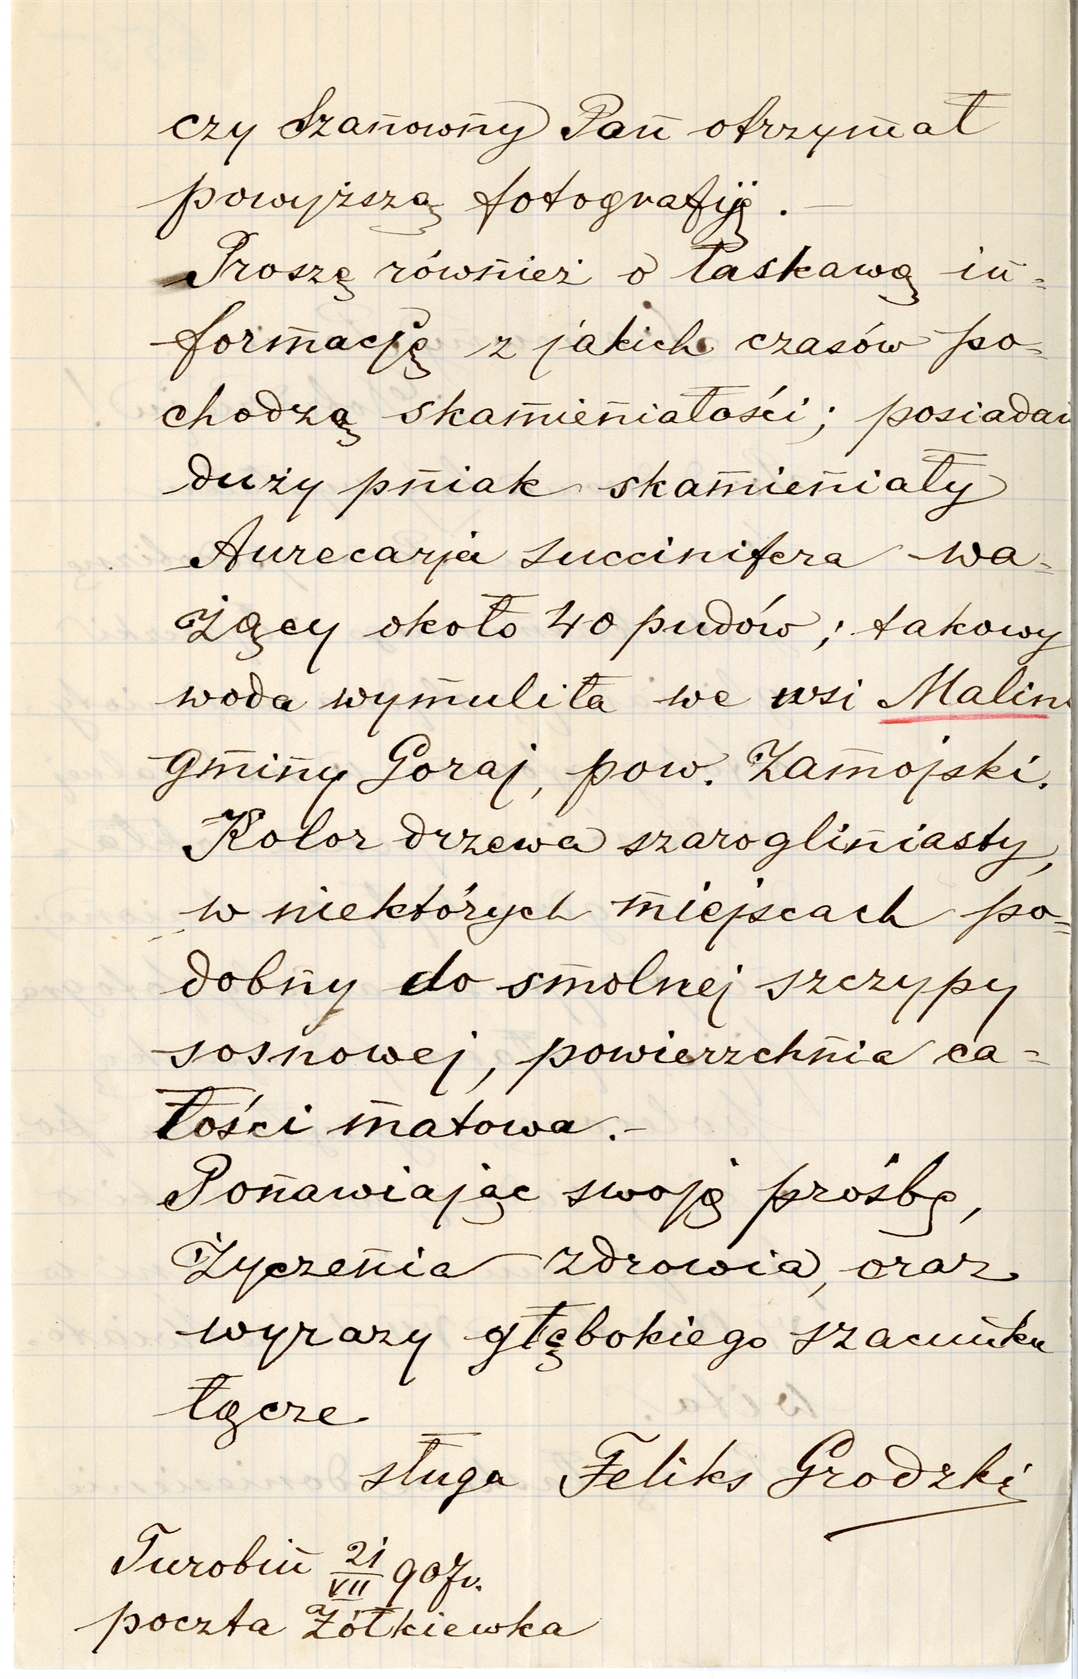 czy Szanowny Pan otrzymał
powyższą fotografiję. —
Proszę również o łaskawą in=
formacyę z jakich czasów po=
chodzą skamieniałości; posiadam
duży pniak skamieniały
Aurecarja succinifera wa=
żący około 40 pudów; takowy
woda wymuliła we wsi Malin
gminy Goraj, pow. Zamojski.
Kolor drzewa szarogliniasty,
w niektórych miejscach po=
dobny do smolnej szczypy
sosnowej, powierzchnia ca=
łości matowa. —
Ponawiając swoją prośbę,
życzenia zdrowia, oraz
wyrazy głębokiego szacunku
łączę
sługa Feliks Grodzki
Turobin 21/VII 907r.
poczta Żółkiewka